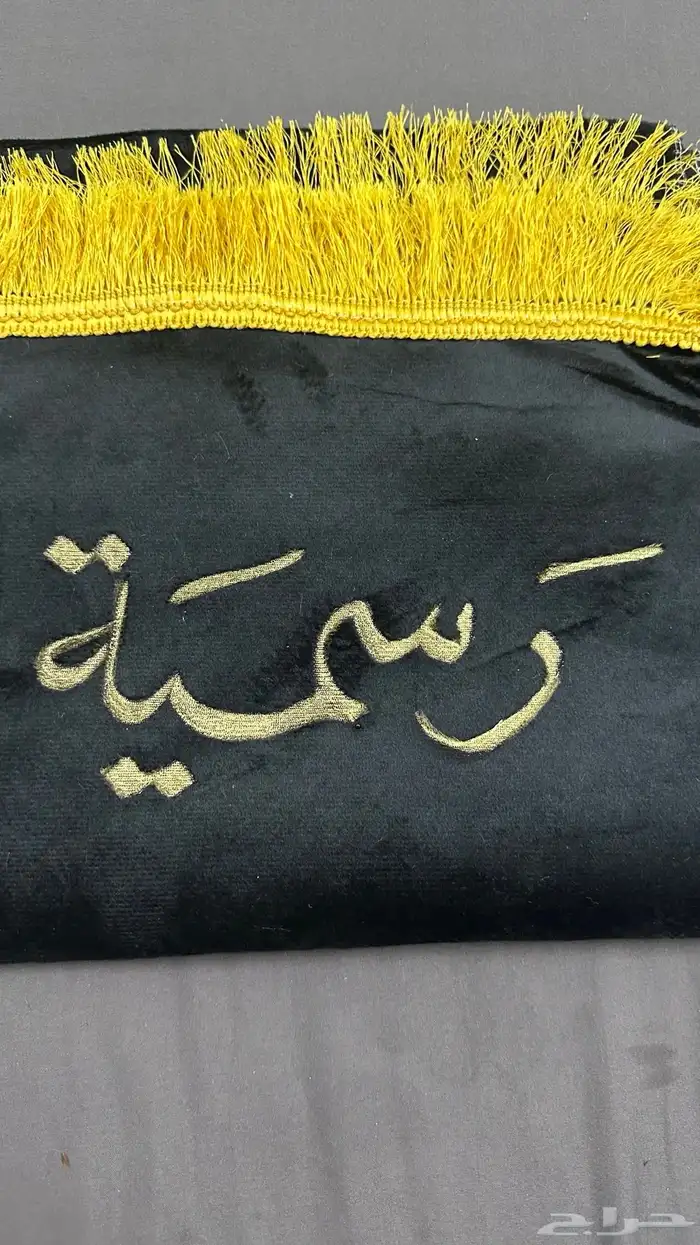 رَسميَة
حراج